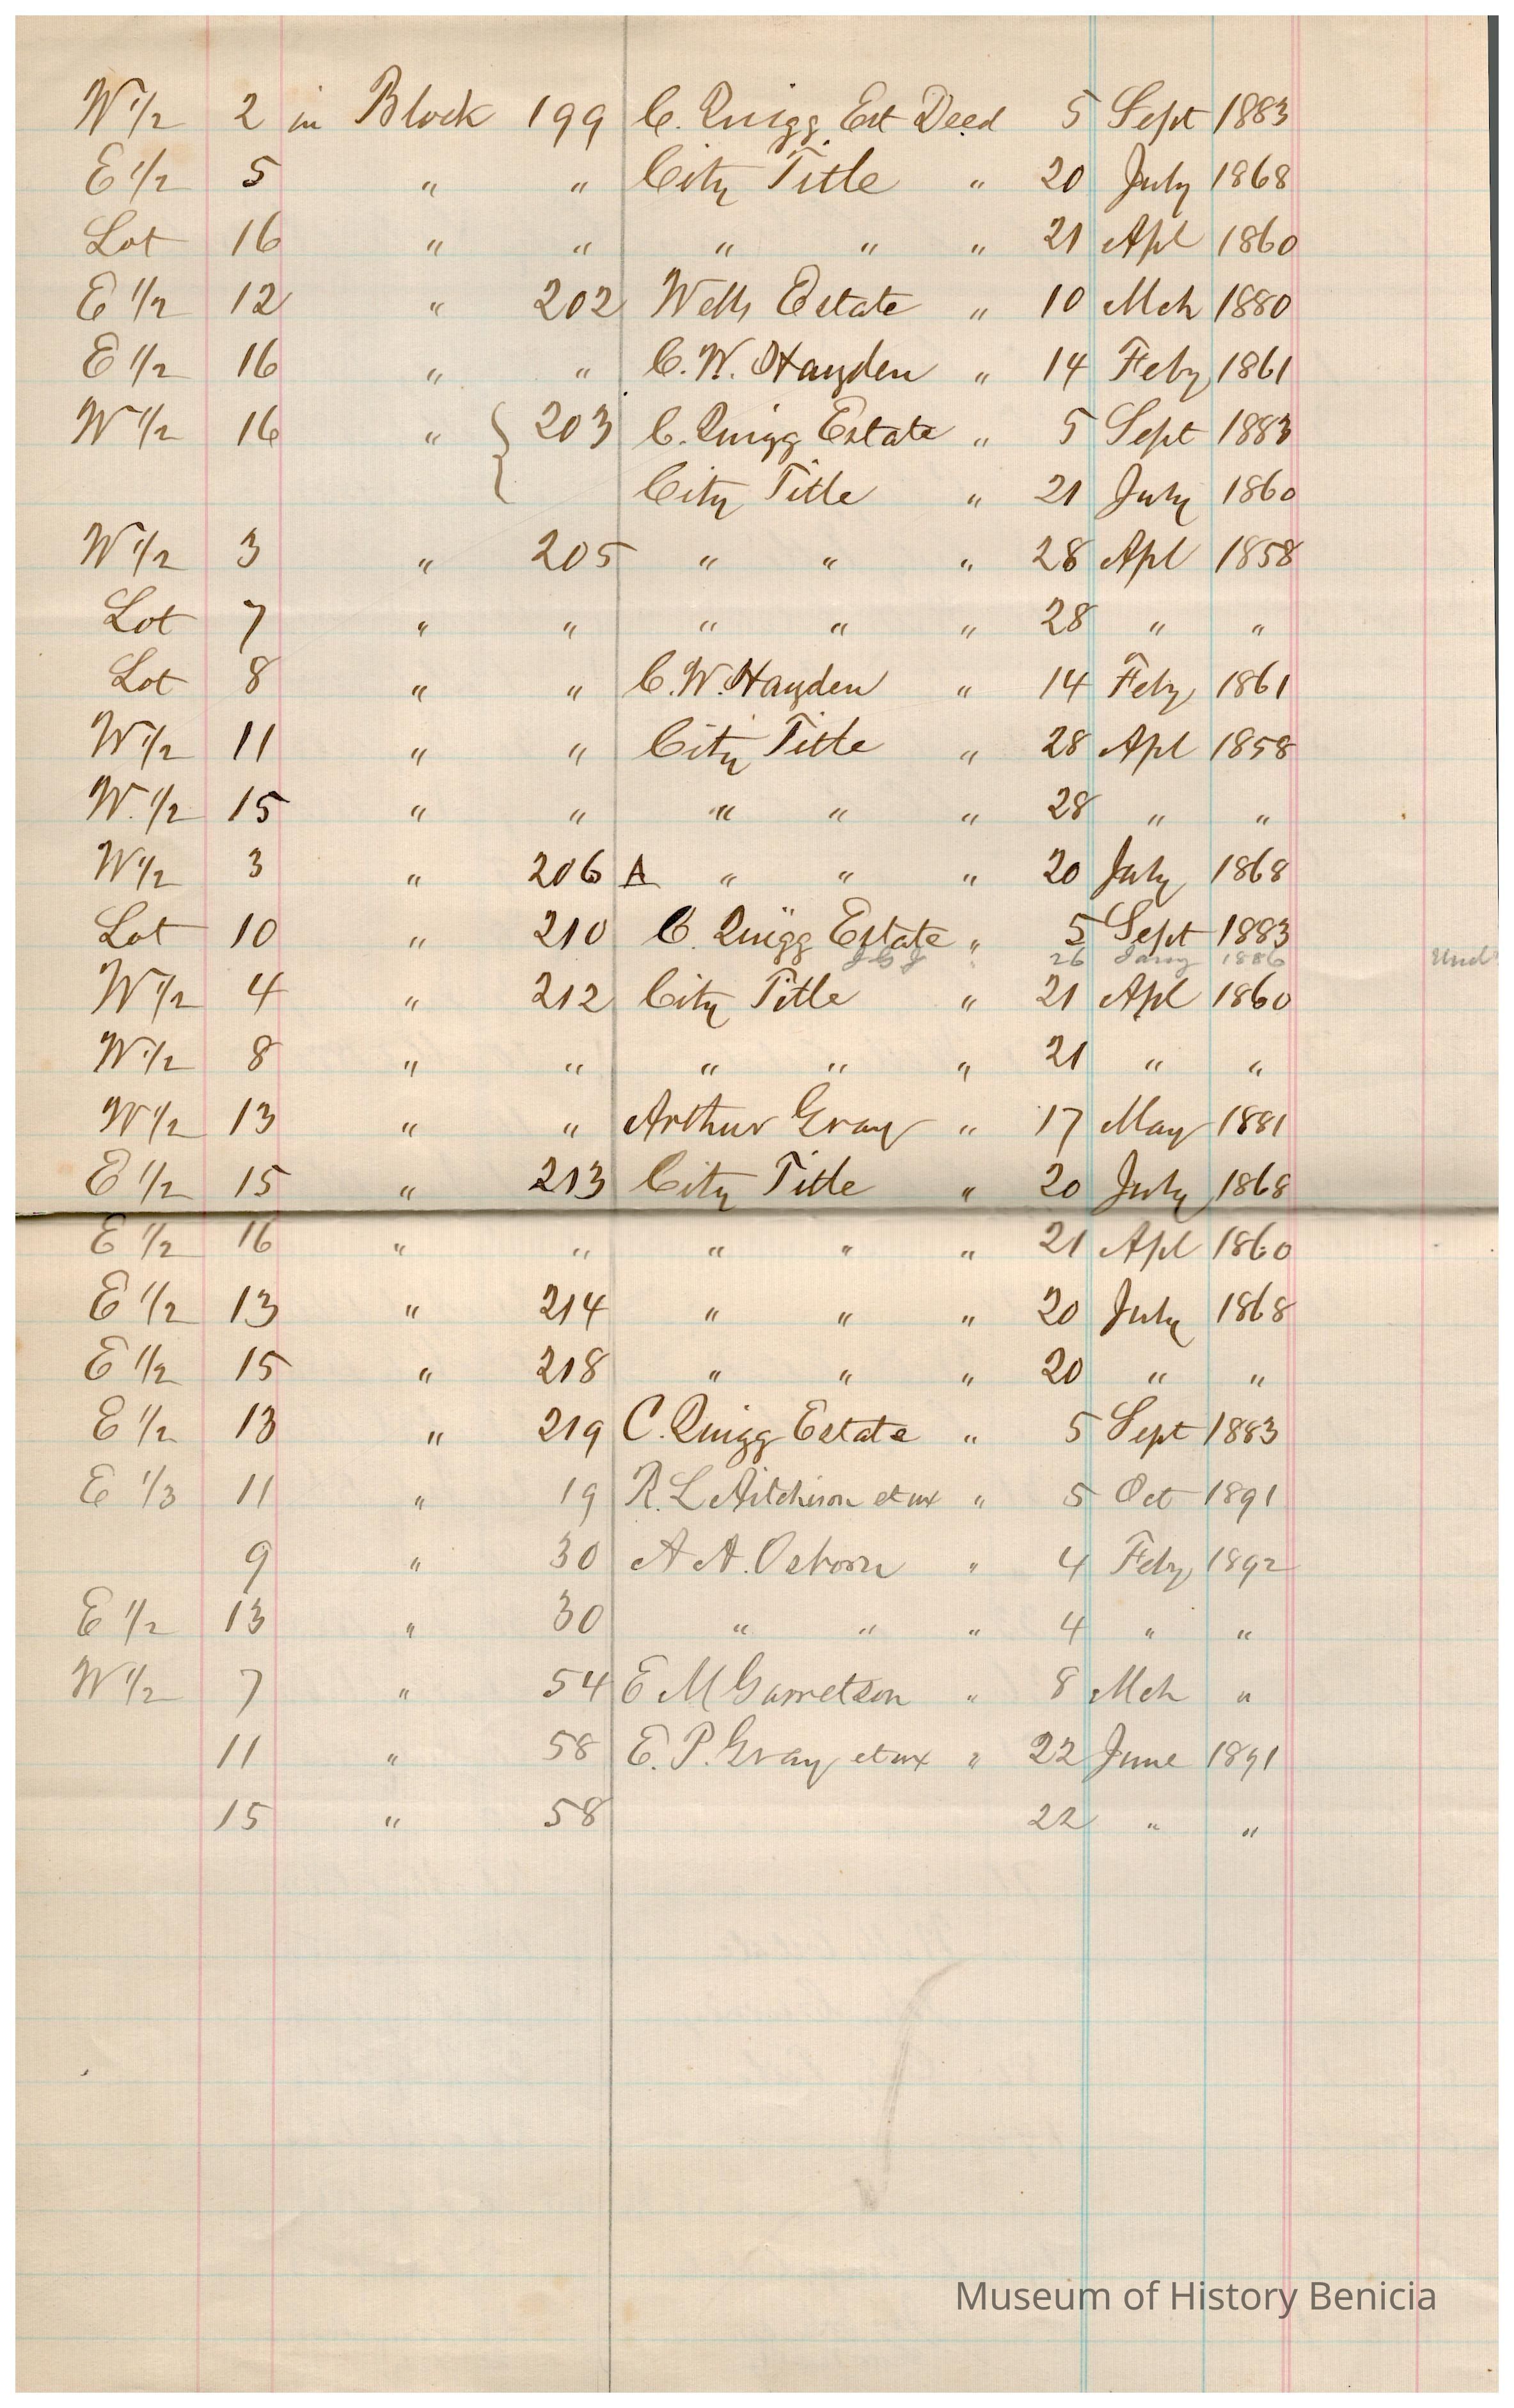 W 1/2 2 in Block 199 C. Quigg Est Deed 5 Sept 1883
E 1/2 5 " " City Title " 20 July 1868
Lot 16 " " " " " 21 Apl 1860
E 1/2 12 " 202 Wells Estate " 10 Mch 1880
E 1/2 16 " " C. W. Hayden " 14 Feby 1861
W 1/2 16 " { 203 C. Quigg Estate " 5 Sept 1883
City Title " 21 July 1860
W 1/2 3 " 205 " " " 28 Apl 1858
Lot 7 " " " " " 28 " "
Lot 8 " " C. W. Hayden " 14 Feby 1861
W 1/2 11 " " City Title " 28 Apl 1858
W. 1/2 15 " " " " " 28 " "
W 1/2 3 " 206 A " " " 20 July 1868
Lot 10 " 210 C. Quigg Estate " 5 Sept 1883
26 Jany 1886 Und
W 1/2 4 " 212 City Title " 21 Apl 1860
W 1/2 8 " " " " " 21 " "
W 1/2 13 " " Arthur Gray " 17 May 1881
E 1/2 15 " 213 City Title " 20 July 1868
E 1/2 16 " " " " " 21 Apl 1860
E 1/2 13 " 214 " " " 20 July 1868
E 1/2 15 " 218 " " " 20 " "
E 1/2 13 " 219 C. Quigg Estate " 5 Sept 1883
E 1/3 11 " 19 R. L Aitchison et ux " 5 Oct 1891
9 " 30 A A. Osborn " 4 Feby 1892
E 1/2 13 " 30 " " " 4 " "
W 1/2 7 " 54 E M Garretson " 8 Mch "
11 " 58 E. P. Gray et ux " 22 June 1891
15 " 58 22 " "
Museum of History Benicia